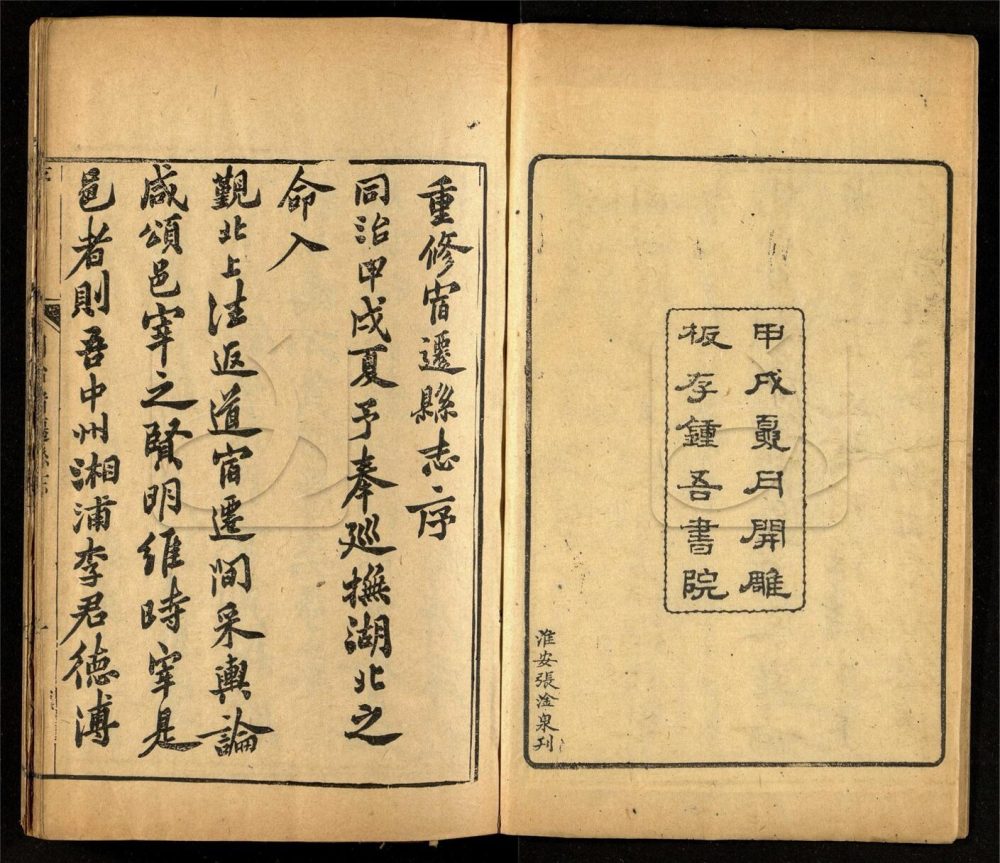 甲戌夏月開雕
板存鍾吾書院
淮安張淦泉刊
重修宿遷縣志序
同治甲戌夏予奉巡撫湖北之
命入
覲北上往返道宿遷間采輿論
咸頌邑宰之賢明維時宰是
邑者則吾中州湘浦李君德溥